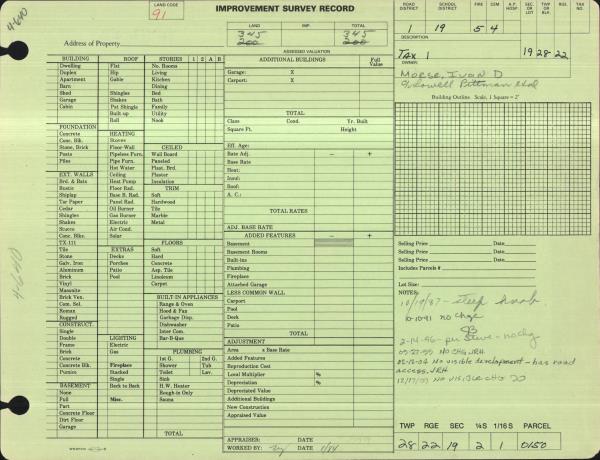 4640
LAND CODE
91
IMPROVEMENT SURVEY RECORD
LAND IMP. TOTAL
345 345
200 200
ASSESSED VALUATION
Address of Property
ROAD DISTRICT SCHOOL DISTRICT FIRE CEM A.P. HOSP. SEC. OR LOT TWP. OR BLK. RGE. TAX NO.
1 19 5 4
DESCRIPTION
TAX 1 19 28 22
OWNER
MORSE, IVAN D
% Lowell Pittman etal
Building Outline Scale, 1 Square = 2'
BUILDING
Dwelling
Duplex
Apartment
Barn
Shed
Garage
Cabin
ROOF
Flat
Hip
Gable
Shingles
Shakes
Pat Shingle
Built up
Roll
STORIES 1 2 A B
No. Rooms
Living
Kitchen
Dining
Bed
Bath
Family
Utility
Nook
FOUNDATION
Concrete
Conc. Blk.
Stone, Brick
Posts
Piles
HEATING
Stoves
Floor-Wall
Pipeless Furn.
Pipe Furn.
Hot Water
Ceiling
Heat Pump
Floor Rad.
Base B. Rad.
Panel Rad.
Oil Burner
Gas Burner
Electric
Air Cond.
Solar
CEILED
Wall Board
Paneled
Plast. Brd.
Plaster
Insulation
EXT. WALLS
Brd. & Bats
Rustic
Shiplap
Tar Paper
Cedar
Shingles
Shakes
Stucco
Conc. Blkc.
TX-111
Tile
Stone
Galv. Iron
Aluminum
Brick
Vinyl
Masonite
Brick Ven.
Com. Sel.
Roman
Rugged
TRIM
Soft
Hardwood
Tile
Marble
Metal
EXTRAS
Decks
Porches
Patio
Pool
FLOORS
Soft
Hard
Concrete
Asp. Tile
Linoleum
Carpet
BUILT-IN APPLIANCES
Range & Oven
Hood & Fan
Garbage Disp.
Dishwasher
Inter Com.
Bar-B-Que
CONSTRUCT.
Single
Double
Frame
Brick
Concrete
Concrete Blk.
Pumice
LIGHTING
Electric
Gas
Fireplace
Stacked
Single
Back to Back
Misc.
PLUMBING
1st G. 2nd G.
Shower Tub
Toilet Lav.
Sink
H.W. Heater
Rough-in Only
Sauna
BASEMENT
None
Full
Part
Concrete Floor
Dirt Floor
Garage
TOTAL
ADDITIONAL BUILDINGS Full Value
Garage: X
Carport: X
TOTAL
Class Cond. Yr. Built
Square Ft. Height
Eff. Age:
Rate Adj. − +
Base Rate
Heat:
Insul:
Roof:
A. C.:
TOTAL RATES
ADJ. BASE RATE
ADDED FEATURES − +
Basement
Basement Rooms
Built-ins
Plumbing
Fireplace
Attached Garage
LESS COMMON WALL
Carport
Pool
Deck
Patio
TOTAL
ADJUSTMENT
Area x Base Rate
Added Features
Reproduction Cost
Local Multiplier %
Depreciation %
Depreciated Value
Additional Buildings
New Construction
Appraised Value
APPRAISER: DATE
WORKED BY: DATE 1/84
Selling Price Date
Selling Price Date
Selling Price Date
Includes Parcels #
Lot Size:
NOTES:
10/19/87 - steep knob
10-10-91 no chge
2-14-96 - per Steve - no chg
05-27-99 NO CHG JRH
02-12-04 No visible development - has road
access, JRH
12/17/09 NO VISIBLE CHG
TWP RGE SEC ¼S 1/16 S PARCEL
28 22 19 2 1 0150